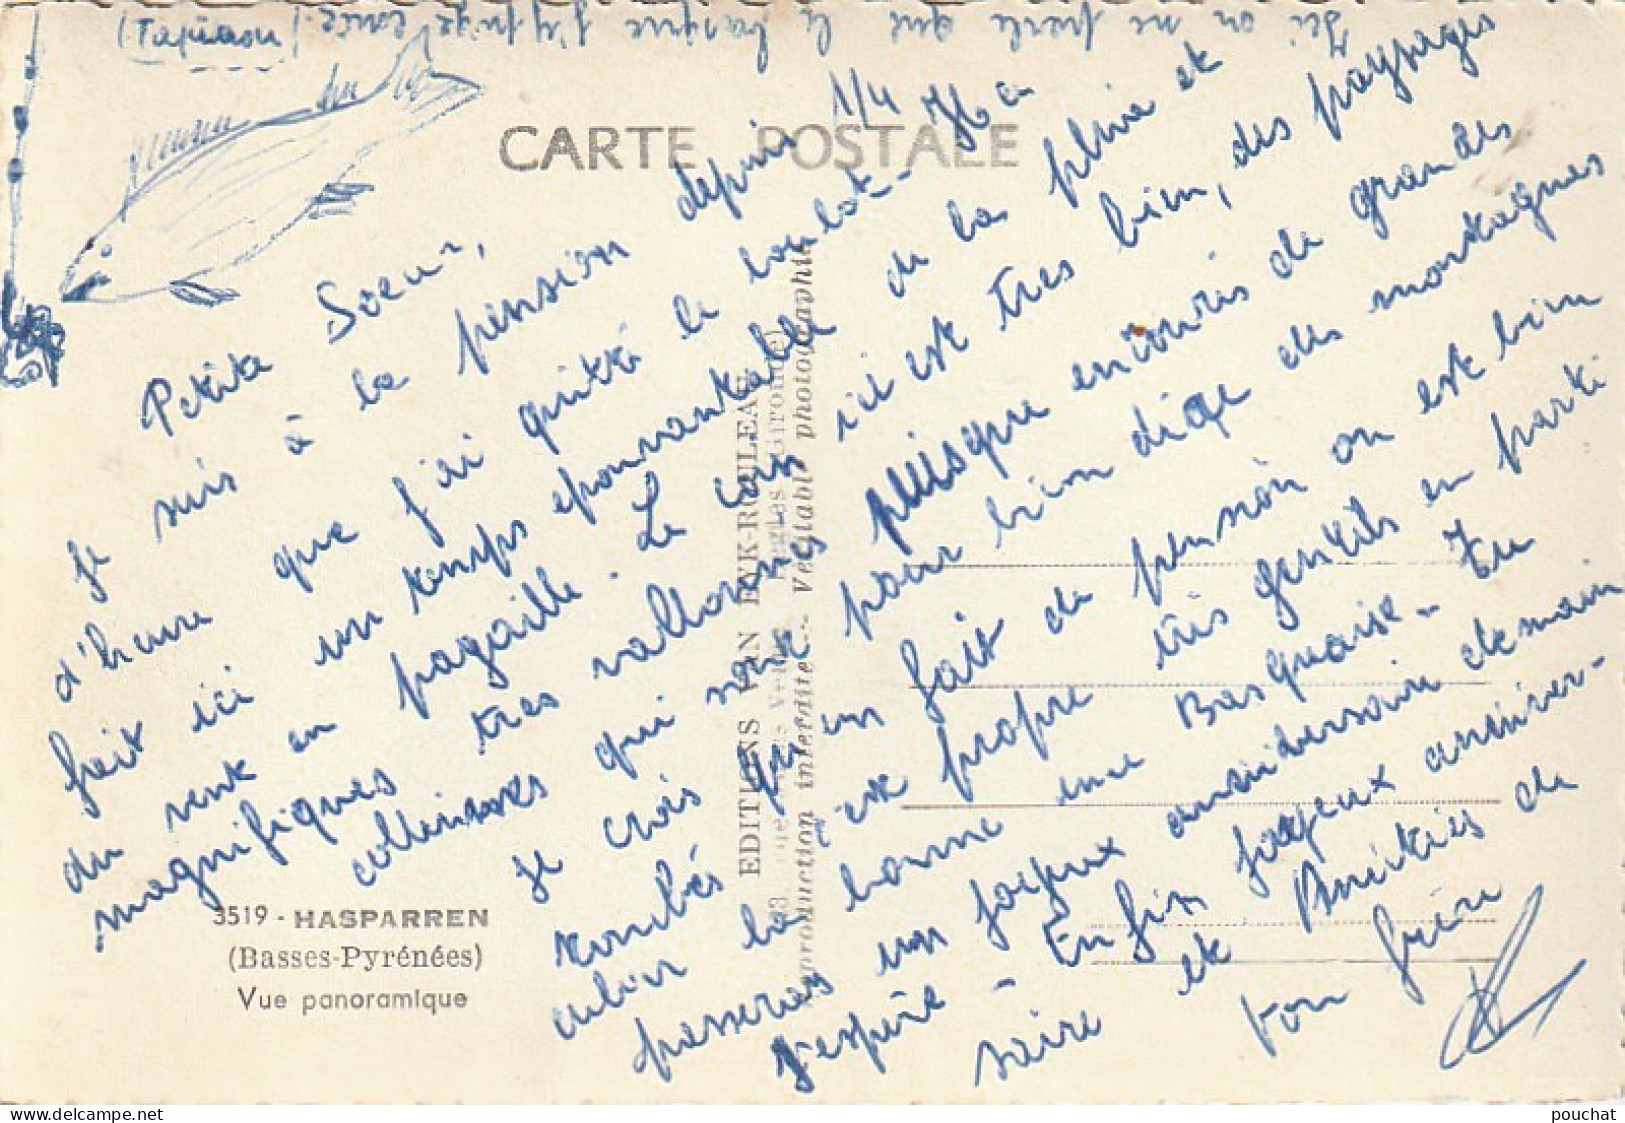 Ici on ne parle que le basque j'y pige
(Tapiaou)
CARTE POSTALE
Petite Soeur,
Je suis à la pension depuis 1/4
d'heure que j'ai quitté le boulot - Il
fait ici un temps épouvantable de la pluie et
du vent en pagaille. Le coin ici est très bien, des paysages
magnifiques très vallonnés puisque entourés de grandes
collines qui sont pour bien dire des montagnes
Je crois qu'en fait de pension on est bien
tombés c'est propre très gentils en parti
culier la bonne une Basquaise - Tu
passeras un joyeux anniversaire demain
j'espère - Enfin joyeux anniver-
saire et Amitiés de
ton frère
EDITIONS VAN EYK-ROULEAU
Reproduction interdite - Véritable photographie
3519 - HASPARREN
(Basses-Pyrénées)
Vue panoramique
delcampe.net
pouchat